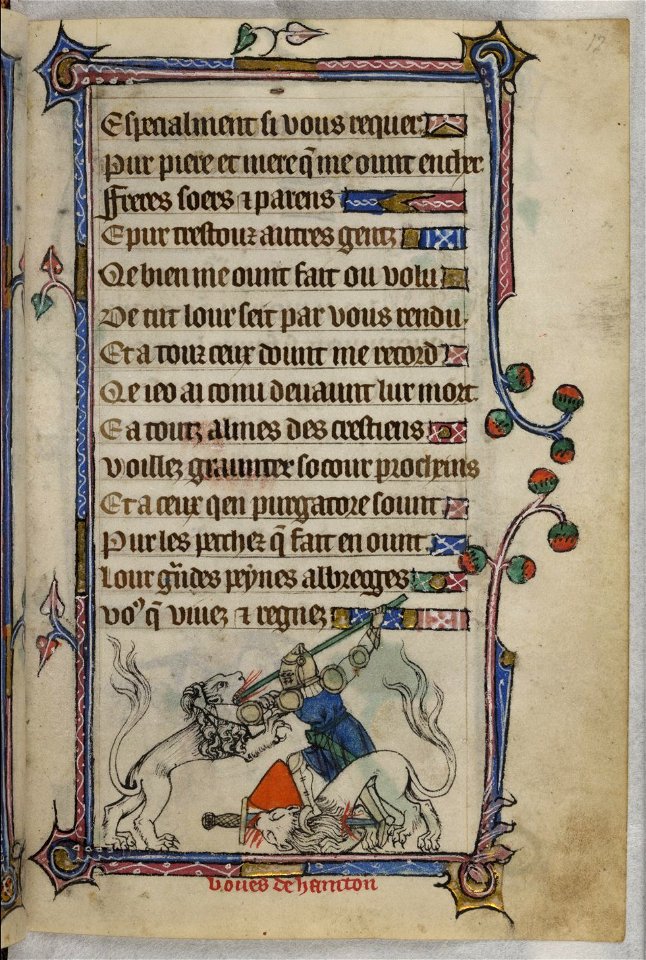 12
Especialment si vous requer
Pur piere et miere q̄ me ount encher
Freres soers ⁊ parens
E pur trestouz autres gentz
Qe bien me ount fait ou volu
De tut lour seit par vous rendu.
Et a touz ceux dount me record
Qe ieo ai conu deuaunt lur mort.
E a toutz almes des crestiens
Voillez graunter socour procheins
Et a ceux qen purgatore sount
Pur les pecchez q̄ fait en ount.
Lour g͛ndes peynes albregges
Vo⁹ q̄ viuez ⁊ regnez
boues de hamton